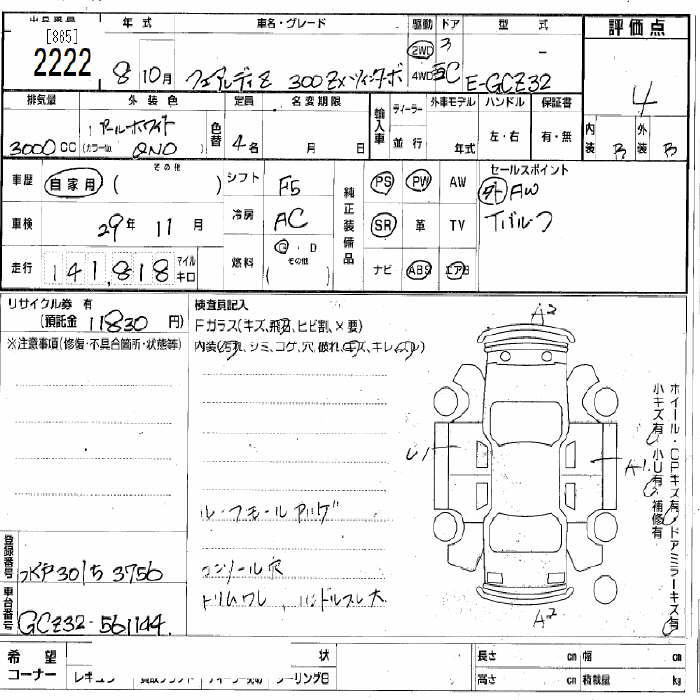 出品票番
[865]
2222
年式 車名・グレード 駆動 ドア 型式 評価点
8 10月 フェアレディZ 300ZXツインターボ 2WD 4WD 3 C E-GCZ32 4
排気量 外装色 定員 名変期限 輸入車 ディーラー 外車モデル ハンドル 保証書
3000 CC パールホワイト (カラーNo. QN0) 色替 4名 月 日 並行 年式 左・右 有・無 内装 B 外装 B
車歴 自家用 ( その他 ) シフト F5 純正装備品 PS PW AW セールスポイント
外 AW
車検 29年 11月 冷房 AC SR 革 TV Tバルーフ
走行 141,818 マイル キロ 燃料 G・D その他 ( ) ナビ ABS エアB
リサイクル券 有 検査員記入 A2
(預託金 11830 円) Fガラス(キズ、飛石、ヒビ割、×要)
※注意事項(修復・不具合箇所・状態等) 内装(汚れ、シミ、コゲ、穴、破れ、キズ、キレ、スレ)
ホイール・CPキズ有 ドアミラーキズ有
小キズ有 小U有 補修有
U1 A1
ルーフモール
登録番号 301 ち 3756
コンソール穴
トリムワレ、ハンドルスレ大
車台番号 GCZ32-561144 A2
希望コーナー 状 長さ cm 幅 cm
高さ cm 積載量 kg